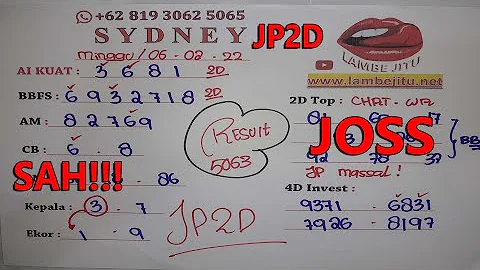 +62 819 3062 5065
SYDNEY
JP2D
LAMBE JITU
www.lambejitu.net
Minggu / 06 - 02 - 22
AI KUAT : 3 6 8 1 2D
BBFS : 6 9 3 2 7 1 8 2D
AM : 8 2 7 6 9
CB : 6 - 8
SAH!!!
86
Kepala : 3 - 7
Ekor : 1 - 9
RESULT
5063
JP2D
2D Top : CHAT - WA
81 17
JOSS
BB
92 78 37
JP massal !
4D Invest :
9371 - 6831
7926 - 8197